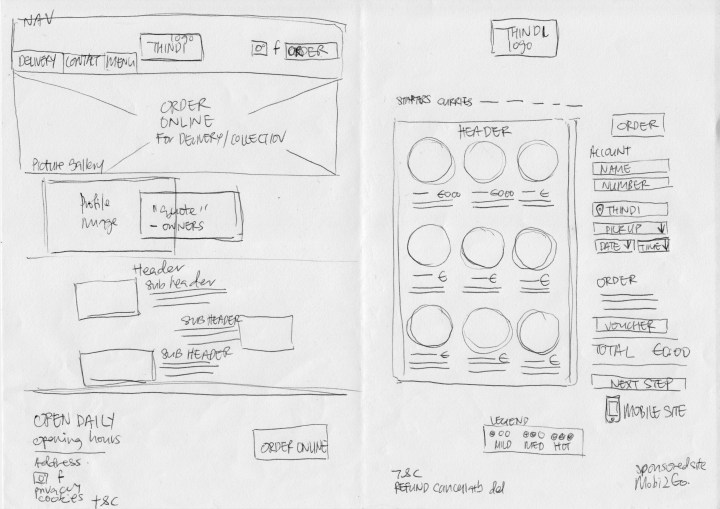 NAV
THINDI
logo
f
ORDER
DELIVERY
CONTACT
MENU
ORDER
ONLINE
FOR DELIVERY/COLLECTION
Picture Gallery
Profile
Image
"Quote"
- OWNERS
Header
Sub header
SUB HEADER
SUB HEADER
OPEN DAILY
opening hours
Address
f
privacy
cookies T&C
ORDER ONLINE
THINDI
logo
STARTERS CURRIES
HEADER
€0.00
€0.00
€
€
€
€
€
€
€
LEGEND
MILD MED HOT
T&C
REFUND
ORDER
ACCOUNT
NAME
NUMBER
THINDI
PICK UP
DATE
TIME
ORDER
VOUCHER
TOTAL €0.00
NEXT STEP
MOBILE SITE
sponsored site
Mobi2Go.